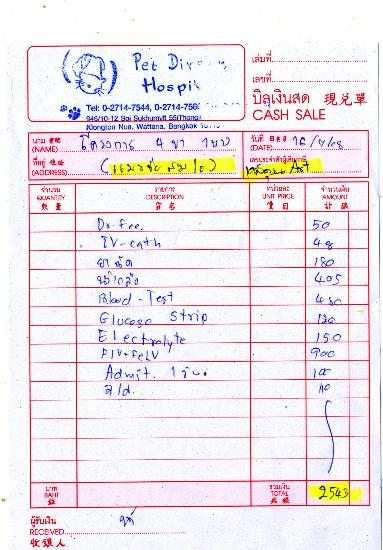 Pet
Hospi
Tel: 0-2714-7544, 0-2714-756
946/10-12 Soi Sukhumvit 55(Thonglo
Klongton Nua, Wattana, Bangkok 10110
เล่มที่
เลขที่
บิลเงินสด 現兌單
CASH SALE
นาม
(NAME) โครงการ 4 ขา
วันที่
(DATE) 16/4/08
ที่อยู่ 住址
(ADDRESS)
เลขประจำตัวผู้เสียภาษี
จำนวน รายการ หน่วยละ จำนวนเงิน
QUANTITY DESCRIPTION UNIT PRICE AMOUNT
數量 貨名 價目 計銀
Dr. Fee. 50
IV-cath 48
ยาฉีด 180
น้ำเกลือ 405
Blood-Test 450
Glucose Strip 120
Electrolyte 150
FIV+FeLV 900
Admit. 1 วัน. 100
a/d. 110
บาท รวมเงิน
BAHT TOTAL 2543
銖 共銀
ผู้รับเงิน
RECEIVED
收銀人